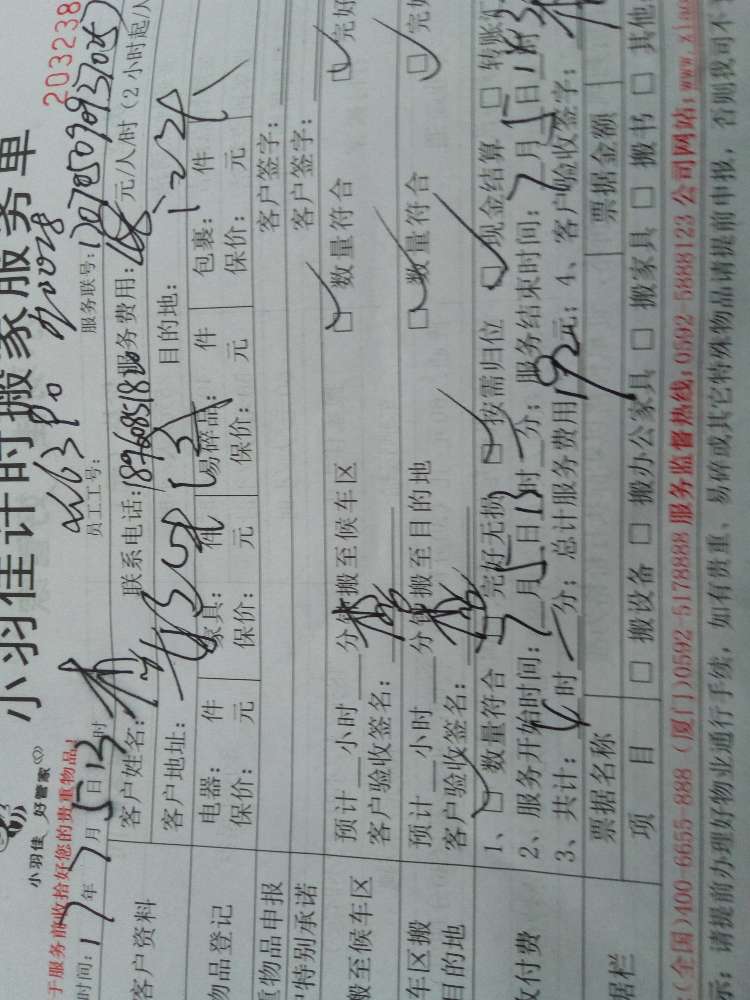 小羽佳计时搬家服务单
203238
小羽佳 好管家
员工工号:
服务联号:
于服务前收拾好您的贵重物品!
时间:17年7月5日13时
客户资料
客户姓名: 联系电话: 服务费用: 元/人/时(2小时起/
客户地址: 目的地:
物品登记
电器: 件 家具: 件 易碎品: 件 包裹: 件
保价: 元 保价: 元 保价: 元 保价: 元
物品申报 客户签字:
特别承诺 客户签字:
搬至候车区
预计 小时 分钟搬至候车区 □数量符合 □完好
客户验收签名:
车区搬
目的地
预计 小时 分钟搬至目的地 □数量符合 □完好
客户验收签名:
付费
1、□数量符合 □完好无损 □按需归位 □现金结算 □转账汇
2、服务开始时间:7月5日13时 分; 服务结束时间:7月5日
3、共计:4时 分; 总计服务费用192元; 4、客户验收签字:
据栏
票据名称 票据金额
项 目 □搬设备 □搬办公家具 □搬家具 □搬书 □其他
(全国)400-6655-888 (厦门)0592-5178888 服务监督热线:0592-5888123 公司网站:www.xiao
示:请提前办理好物业通行手续,如有贵重、易碎或其它特殊物品请提前申报,否则我司不